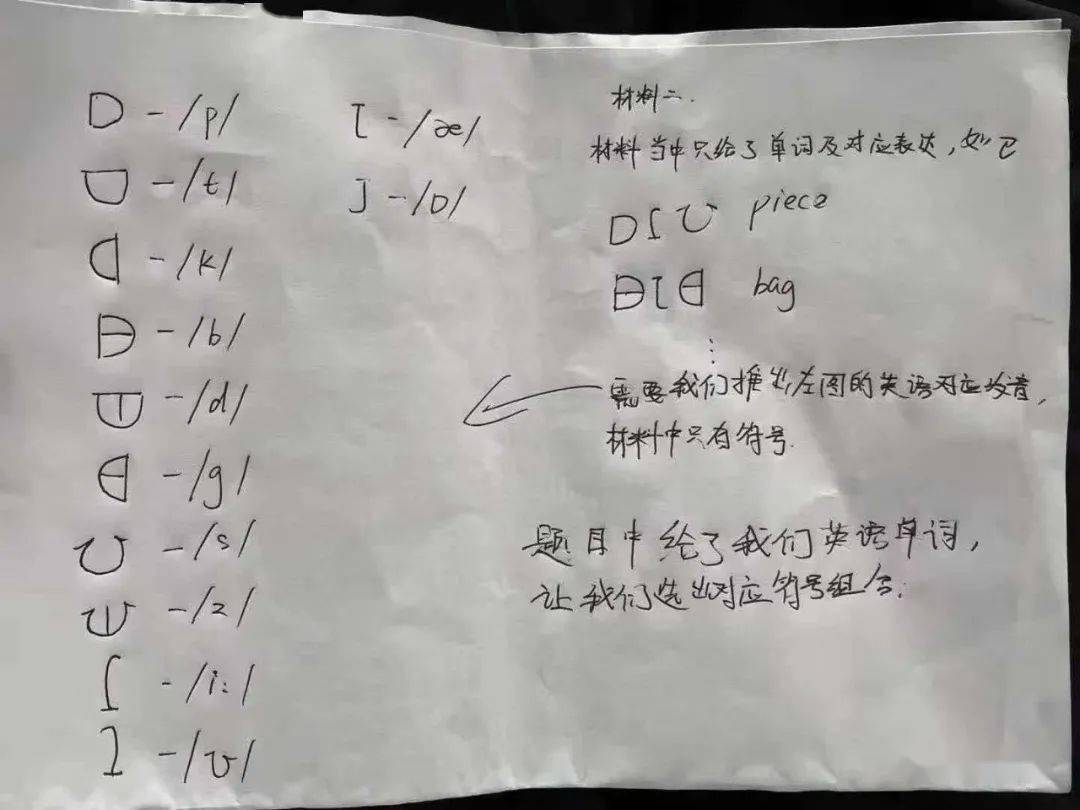 D - /p/
- /t/
- /k/
- /b/
- /d/
- /g/
- /s/
- /z/
- /i:/
- /ʊ/
- /æ/
- /ɒ/
材料二.
材料当中只给了单词及对应表达,如已
piece
bag
⋮
需要我们推出左图的英语对应发音,
材料中只有符号.
题目中给了我们英语单词,
让我们选出对应符号组合.